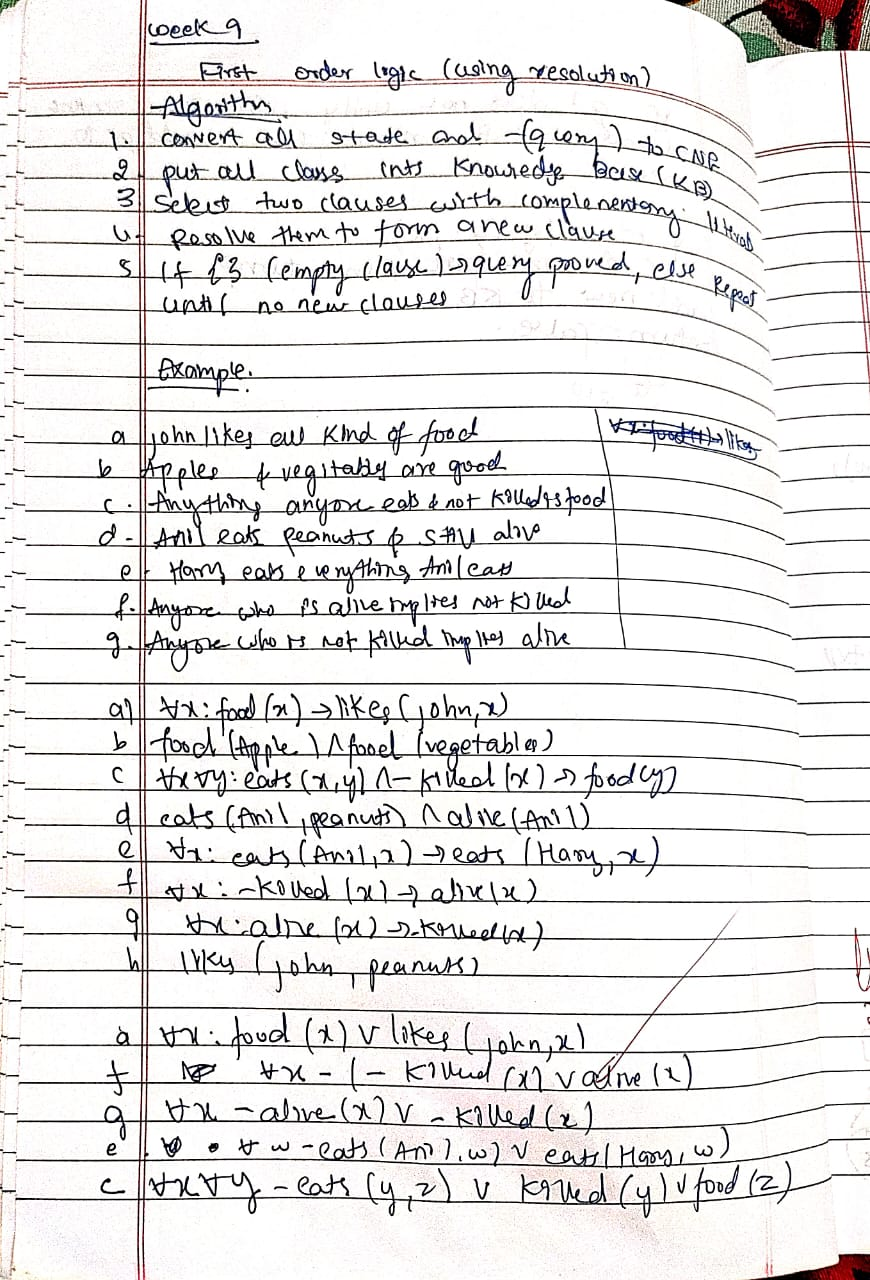 week 9
First order logic (using resolution)
Algorithm
1. convert all state and ¬(query) to CNF
2 put all class into Knowledge base (KB)
3 Select two clauses with complementary literals
4. Resolve them to form a new clause
5 If {} (empty clause) → query proved, else Repeat
until no new clauses
Example.
a john likes all kind of food
b Apples & vegitably are good
c. Anything anyone eats & not killed is food
d - Anil eats peanuts & still alive
e. Harry eats everything Anil eats
f. Anyone who is alive implies not killed
g. Anyone who is not killed implies alive
a) ∀x: food(x) → likes (john, x)
b food (Apple) ∧ food (vegetables)
c ∀x∀y: eats (x, y) ∧ ¬ killed (x) → food(y)
d eats (Anil, peanuts) ∧ alive (Anil)
e ∀x: eats (Anil, x) → eats (Harry, x)
f ∀x: ¬killed (x) → alive (x)
g ∀x: alive (x) → ¬killed (x)
h likes (john, peanuts)
a ∀x: food (x) ∨ likes (john, x)
f ∀x ¬ (¬ killed (x) ∨ alive (x)
g ∀x ¬ alive (x) ∨ ¬ killed (x)
e ∀ w ¬ eats (Anil, w) ∨ eats (Harry, w)
c ∀x∀y ¬ eats (y, z) ∨ killed (y) ∨ food (z)